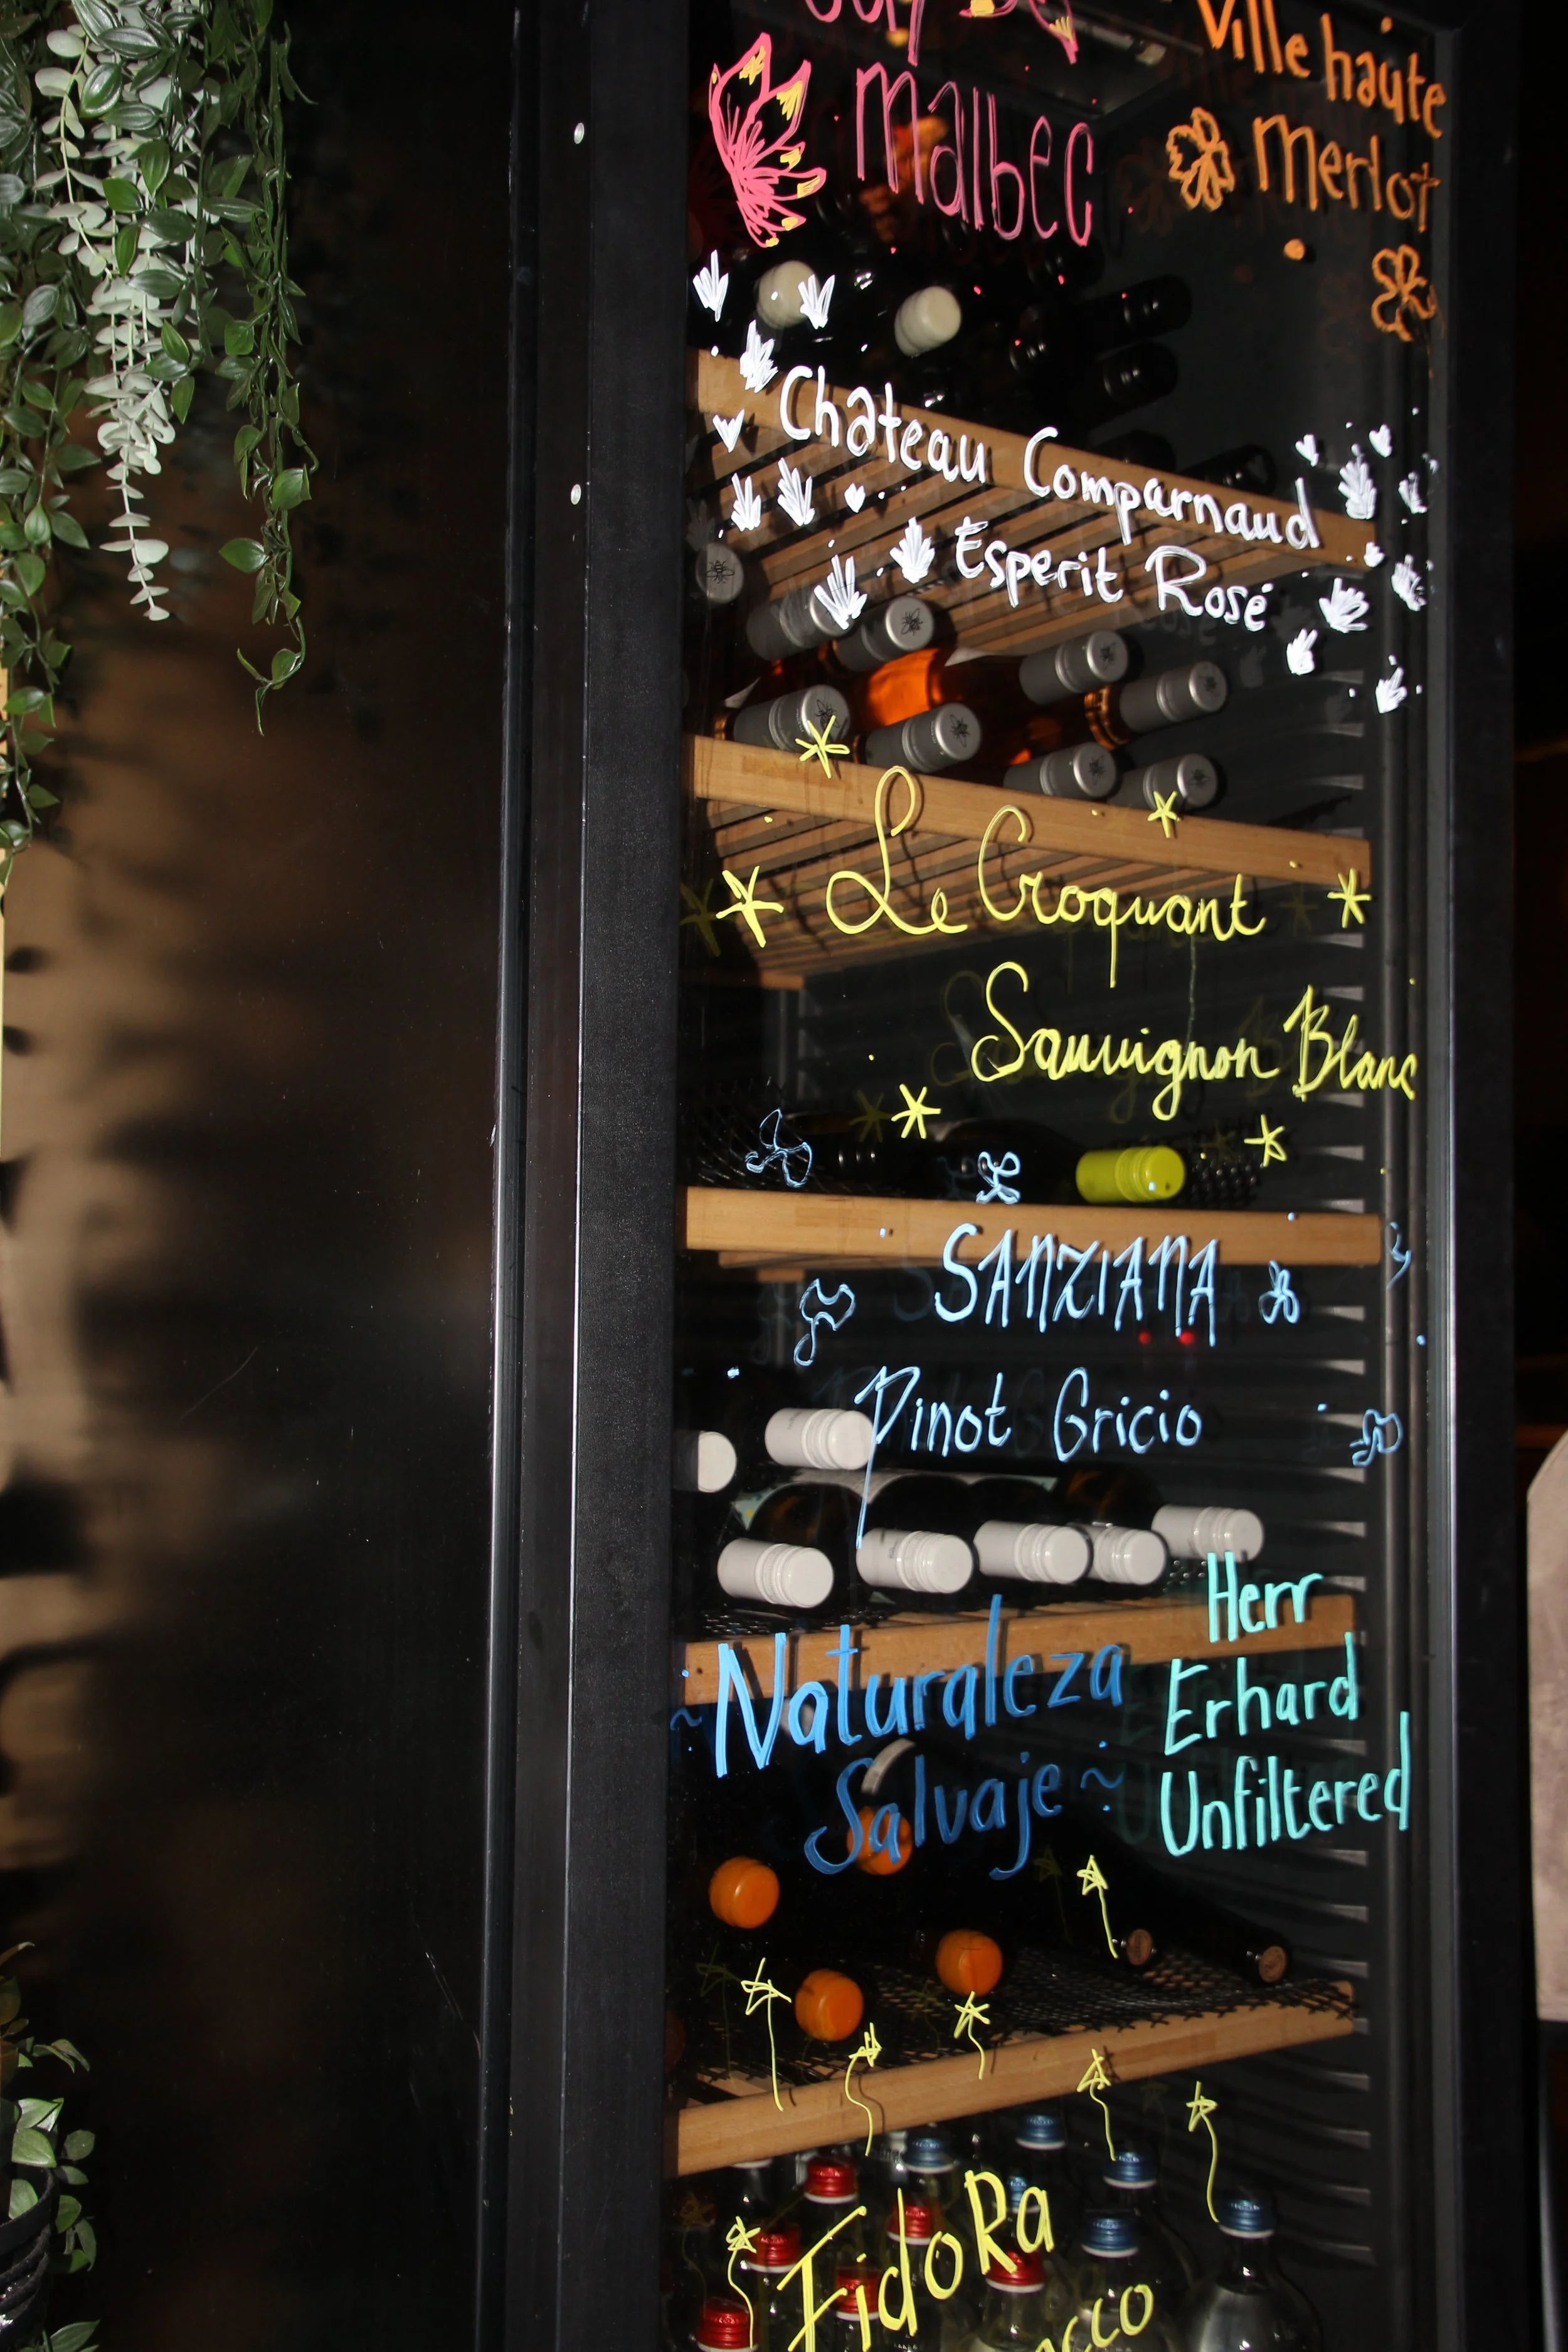 malbec
Ville haute
merlot
Chateau Comparnaud
Esperit Rosé
Le Croquant
Sauvignon Blanc
SANZIANA
Pinot Gricio
Naturaleza
Salvaje
Herr
Erhard
Unfiltered
FidoRa